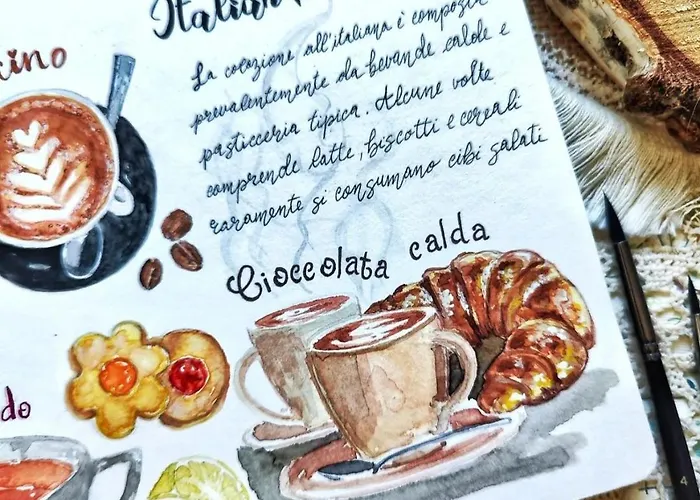 Italian
cino
La colazione all'italiana è composta
prevalentemente da bevande calde e
pasticceria tipica. Alcune volte
comprende latte, biscotti e cereali
raramente si consumano cibi salati
Cioccolata calda
do
4